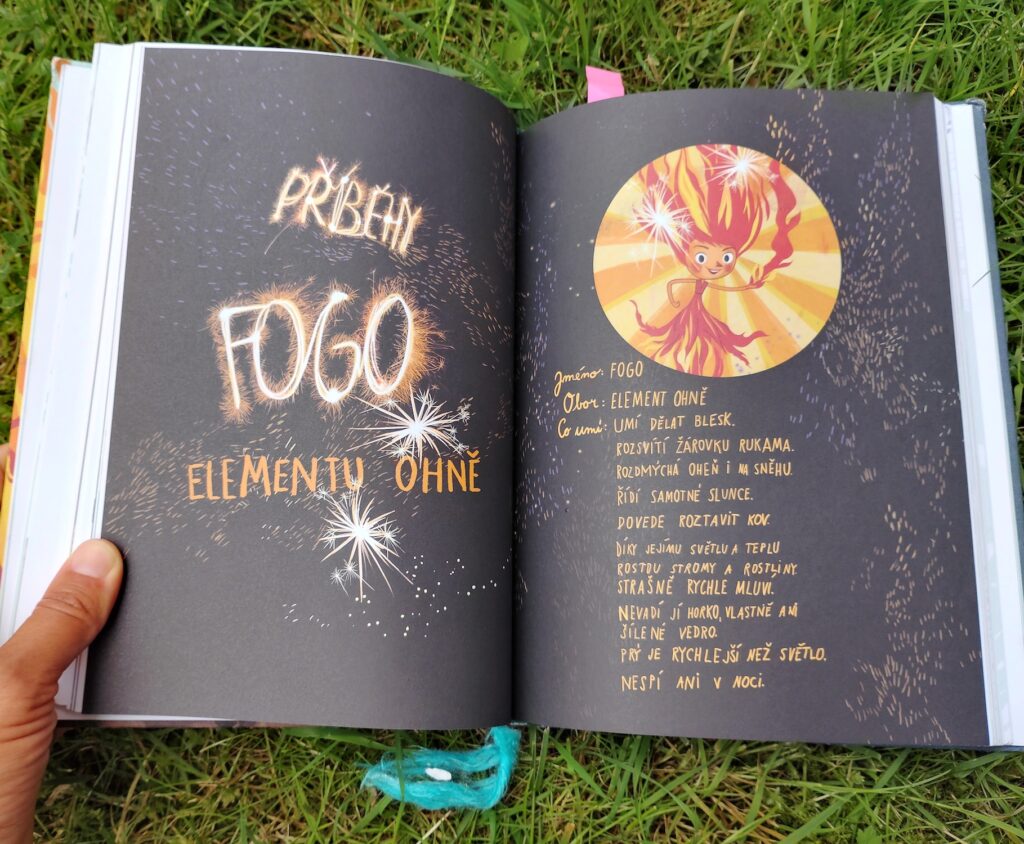 PŘÍBĚHY
FOGO
ELEMENTU OHNĚ
Jméno: FOGO
Obor: ELEMENT OHNĚ
Co umí: UMÍ DĚLAT BLESK.
ROZSVÍTÍ ŽÁROVKU RUKAMA.
ROZDMÝCHÁ OHEŇ I NA SNĚHU.
ŘÍDÍ SAMOTNÉ SLUNCE.
DOVEDE ROZTAVIT KOV.
DÍKY JEJÍMU SVĚTLU A TEPLU
ROSTOU STROMY A ROSTLINY.
STRAŠNĚ RYCHLE MLUVÍ.
NEVADÍ JÍ HORKO, VLASTNĚ ANI
ŠÍLENÉ VEDRO.
PRÝ JE RYCHLEJŠÍ NEŽ SVĚTLO.
NESPÍ ANI V NOCI.